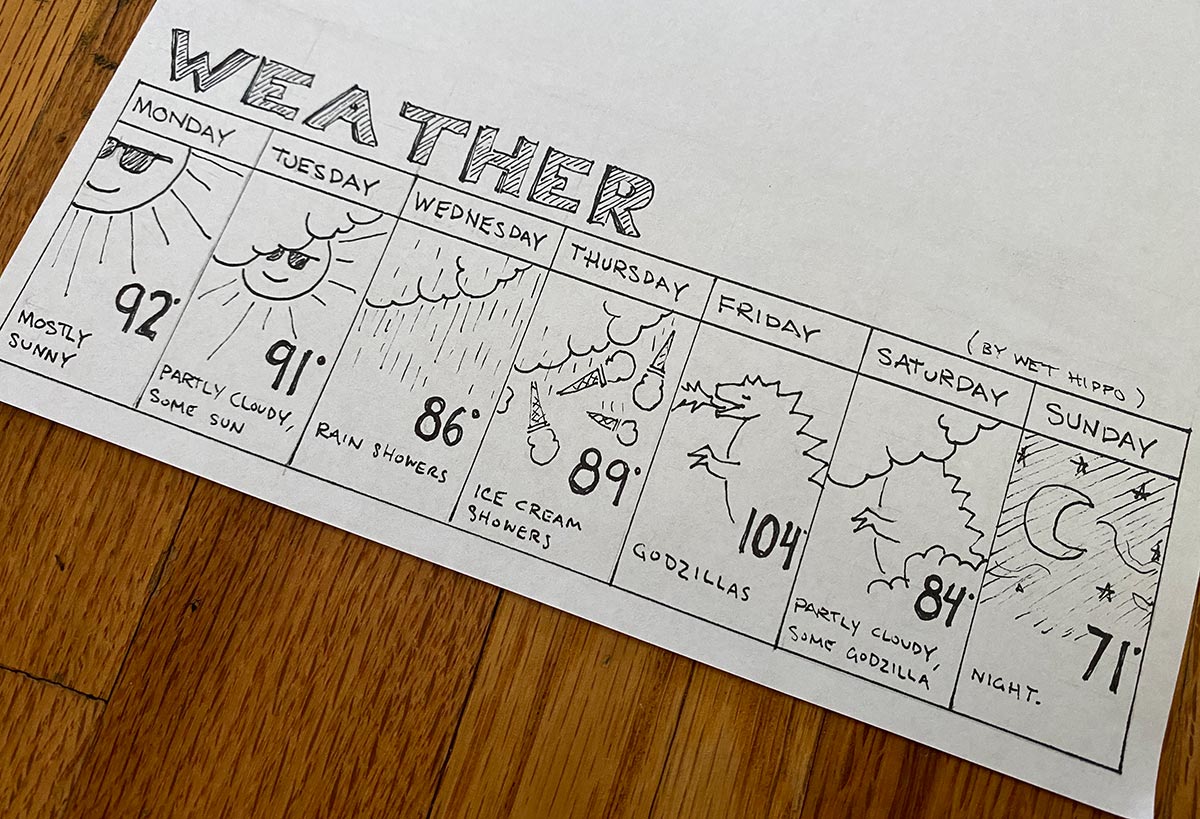 WEATHER
(BY WET HIPPO)
MONDAY
92°
MOSTLY
SUNNY
TUESDAY
91°
PARTLY CLOUDY,
SOME SUN
WEDNESDAY
86°
RAIN SHOWERS
THURSDAY
89°
ICE CREAM
SHOWERS
FRIDAY
104°
GODZILLAS
SATURDAY
84°
PARTLY CLOUDY,
SOME GODZILLA
SUNDAY
71°
NIGHT.